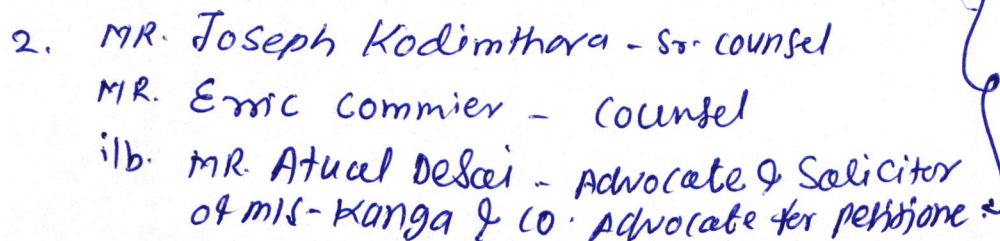 2. MR. Joseph Kodimthara - Sr. counsel
MR. Erric Commier - Counsel
i/b. MR. Atual Desai - Advocate & Solicitor
of M/s - Kanga & Co. Advocate for petitione